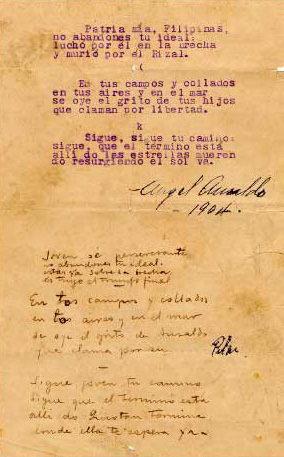 Patria mia, Filipinas,
no abandones tu ideal:
luchó por él en la brecha
y murió por el Rizal.
(
En tus campos y collados
en tus aires y en el mar
se oye el grito de tus hijos
que claman por libertad.
k
Sigue, sigue tu camino:
sigue, que el término está
allí do las estrellas mueren
do resurgiendo el sol va.
Angel
- 1904.
Joven se perseverante
no abandones tu ideal
estás ya sobre la brecha
es tuyo el triunfo final
En tos campos y collados
en tos aires y en el mar
se oye el grito de
que clama por su
Pilar.
Sigue joven tu camino
Sigue que el termino está
alli do termina
donde ella te espera ya.